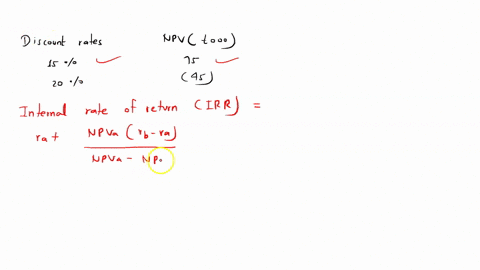 Discount rates NPV (£000)
15 % 75
20 % (45)
Internal rate of return (IRR) =
ra + NPVa (rb - ra)
NPVa - NP